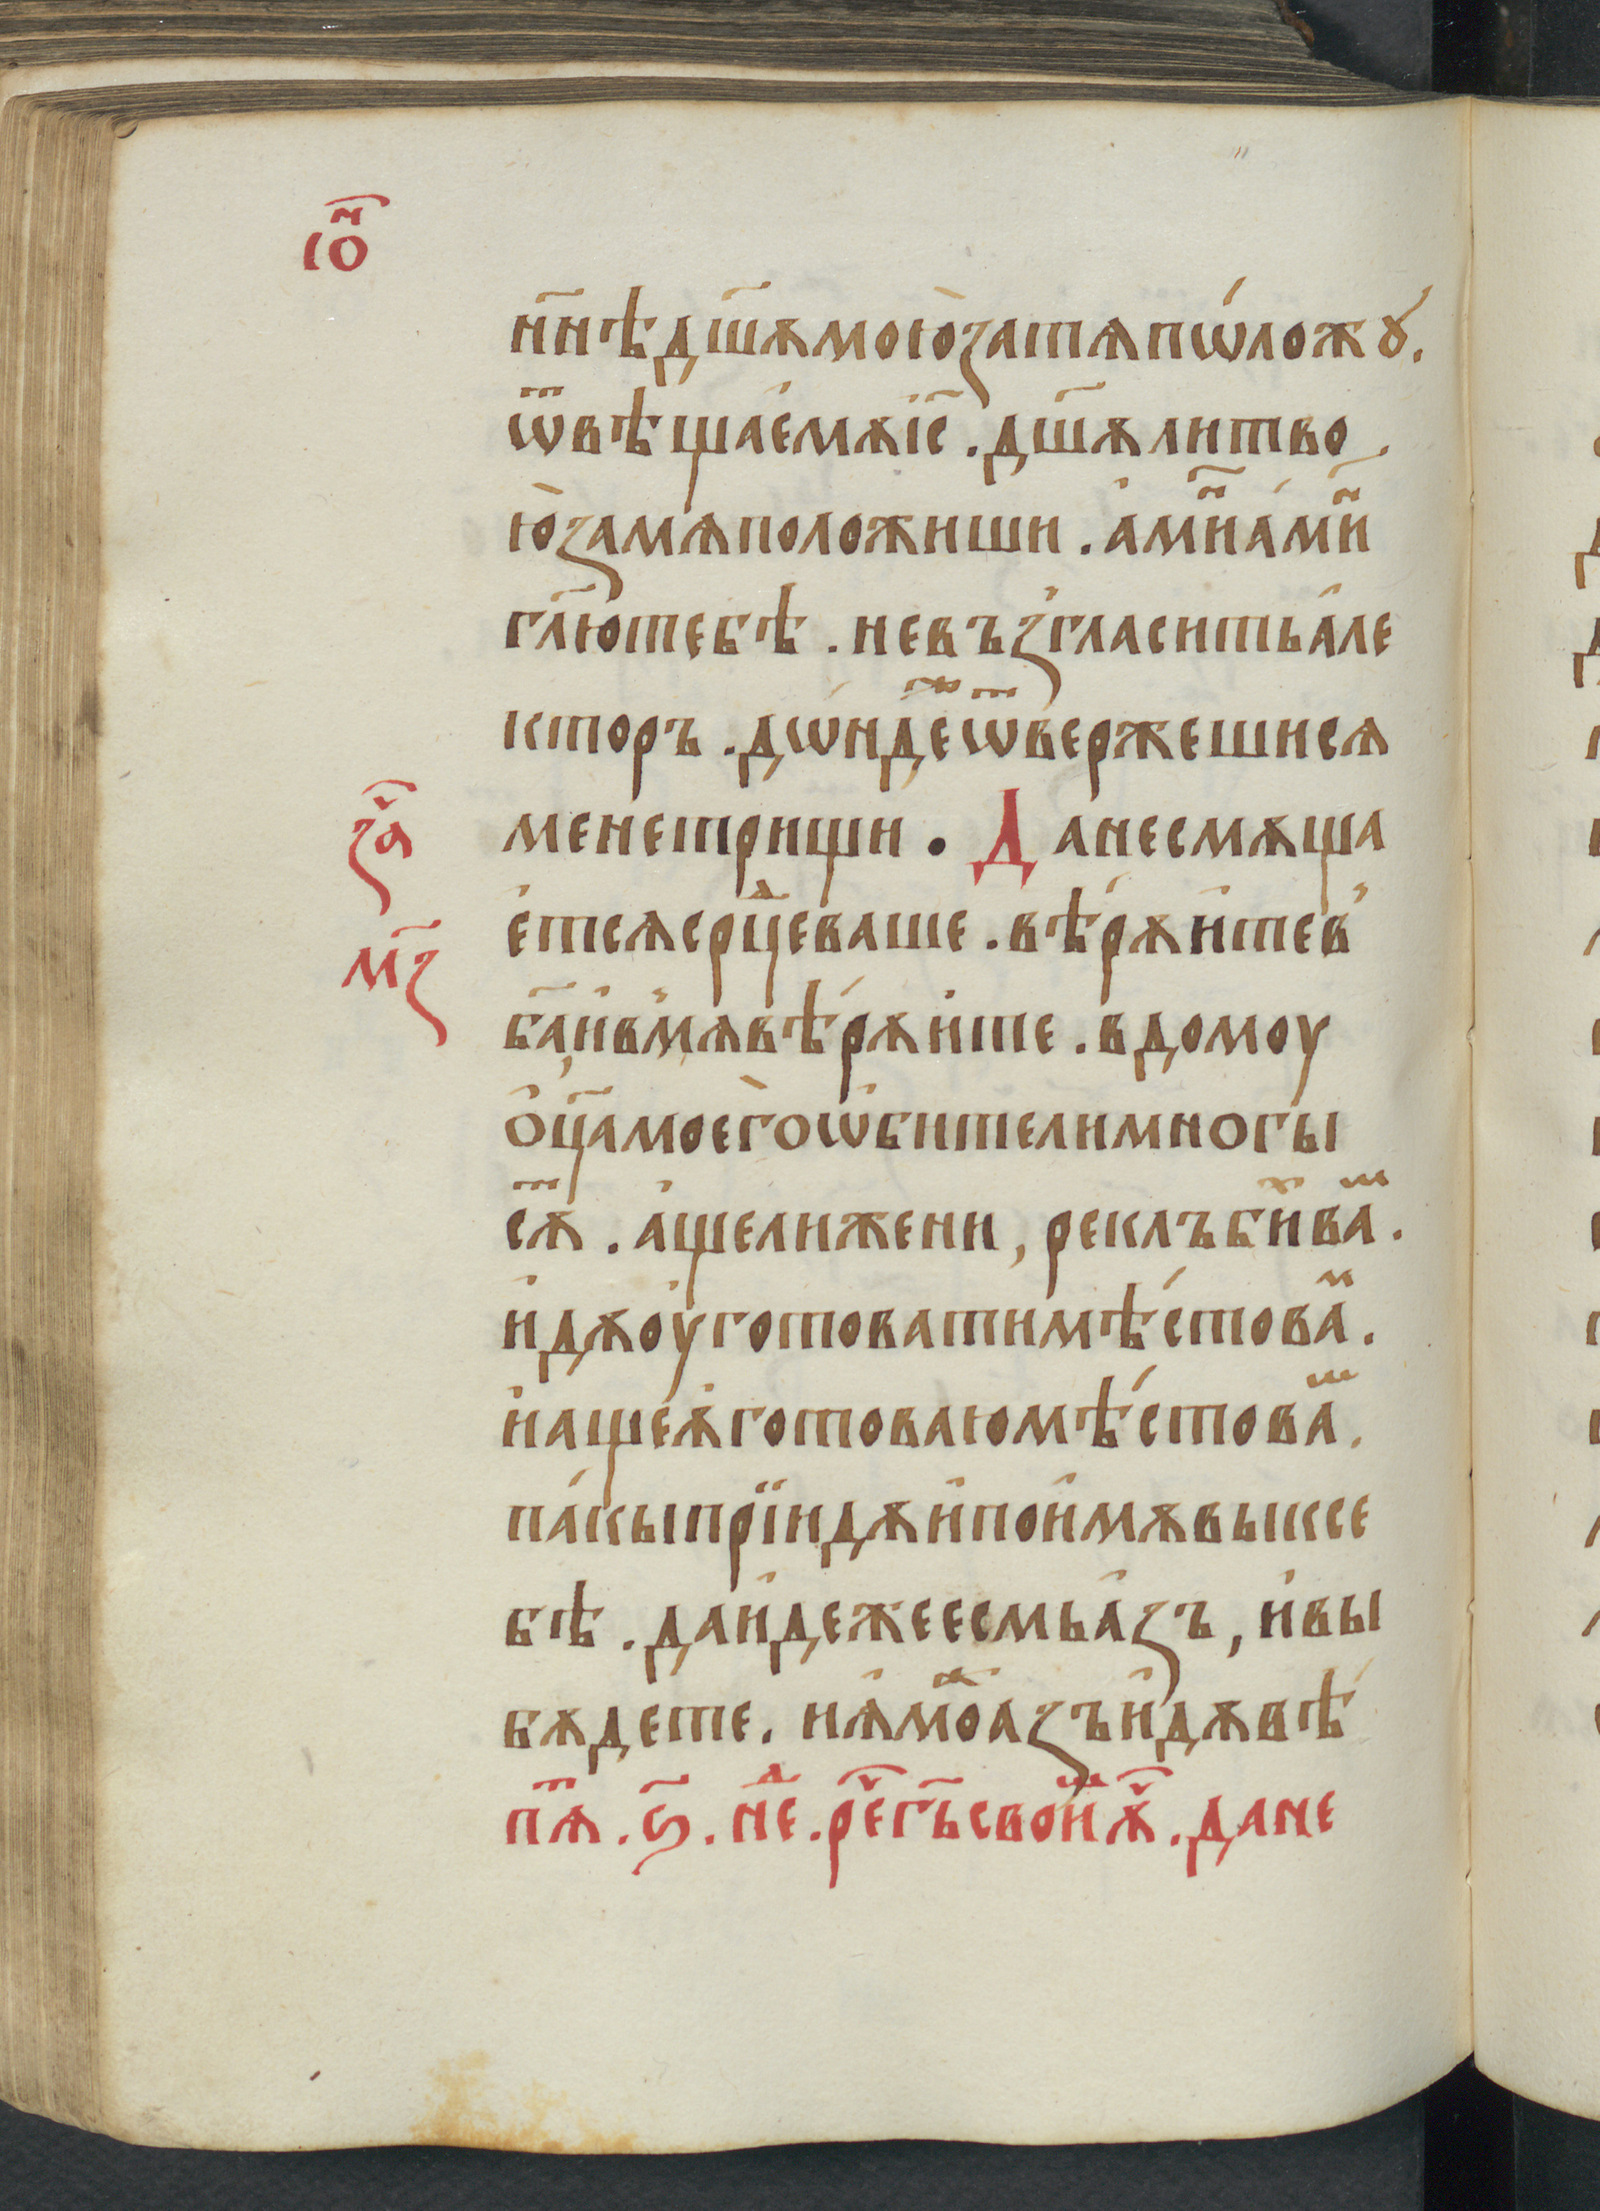 іѡ҃ⷩ
нн҃ѣдш҃ѫмою̀затѧпѡ́ложꙋ.
ѿвѣщаемѫі҃с. дш҃ѫлитво
ю̀замѧположиши. а҆ми҃ⷩа҆ми҃ⷩ
гл҃ютебѣ. невъзгласитьа҆ле
кторъ. дѡ́ндеⷤѿвержешисѧ
менетрищи. Данесмѫща
за҃ⷱ
е҆тсѧсрⷣцеваше. вѣ́рѫи҆тев
мз҃
б҃аи҆вмѧвѣ́рѫи҆те. вдомоу
о҆ц҃амоег̀оѡ҆бителимногы
сѫⷮ. а҆щелижени, реклъбиⷯваⷨ.
идѫоуготоватимѣ́стоваⷨ.
и҆ащеѧ҆готоваюмѣ́стоваⷨ.
па́кыпрїидѫи҆пои҆мѫвыксе
бѣ. даи҆дежеесмьа҆зъ, и҆вы
бѫдете. и҆ѧ҆моⷤазъи҆дѫвѣ́
пѫⷮ. ѕ҃. неⷣ. реⷱг҃ьсвоиⷨѫ҃ⷱ. дане